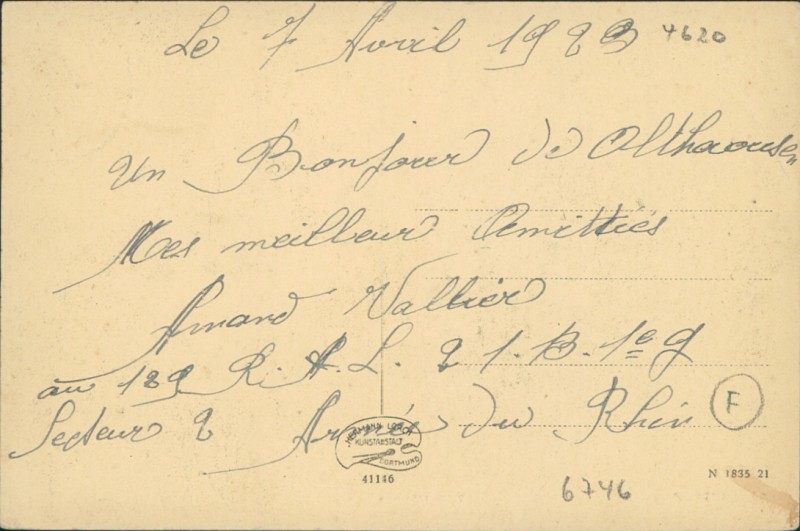 Le 7 Avril 1923 4620
Un Bonjour de Althaousen
Mes meilleur Amittiés
Amand Vallier
au 189 R. A. L. 2 1. B. 1e g
Secteur 2 Armée du Rhin
F
HERMANN LORCH
KUNSTANSTALT
DORTMUND
41146
N 1835 21
6746